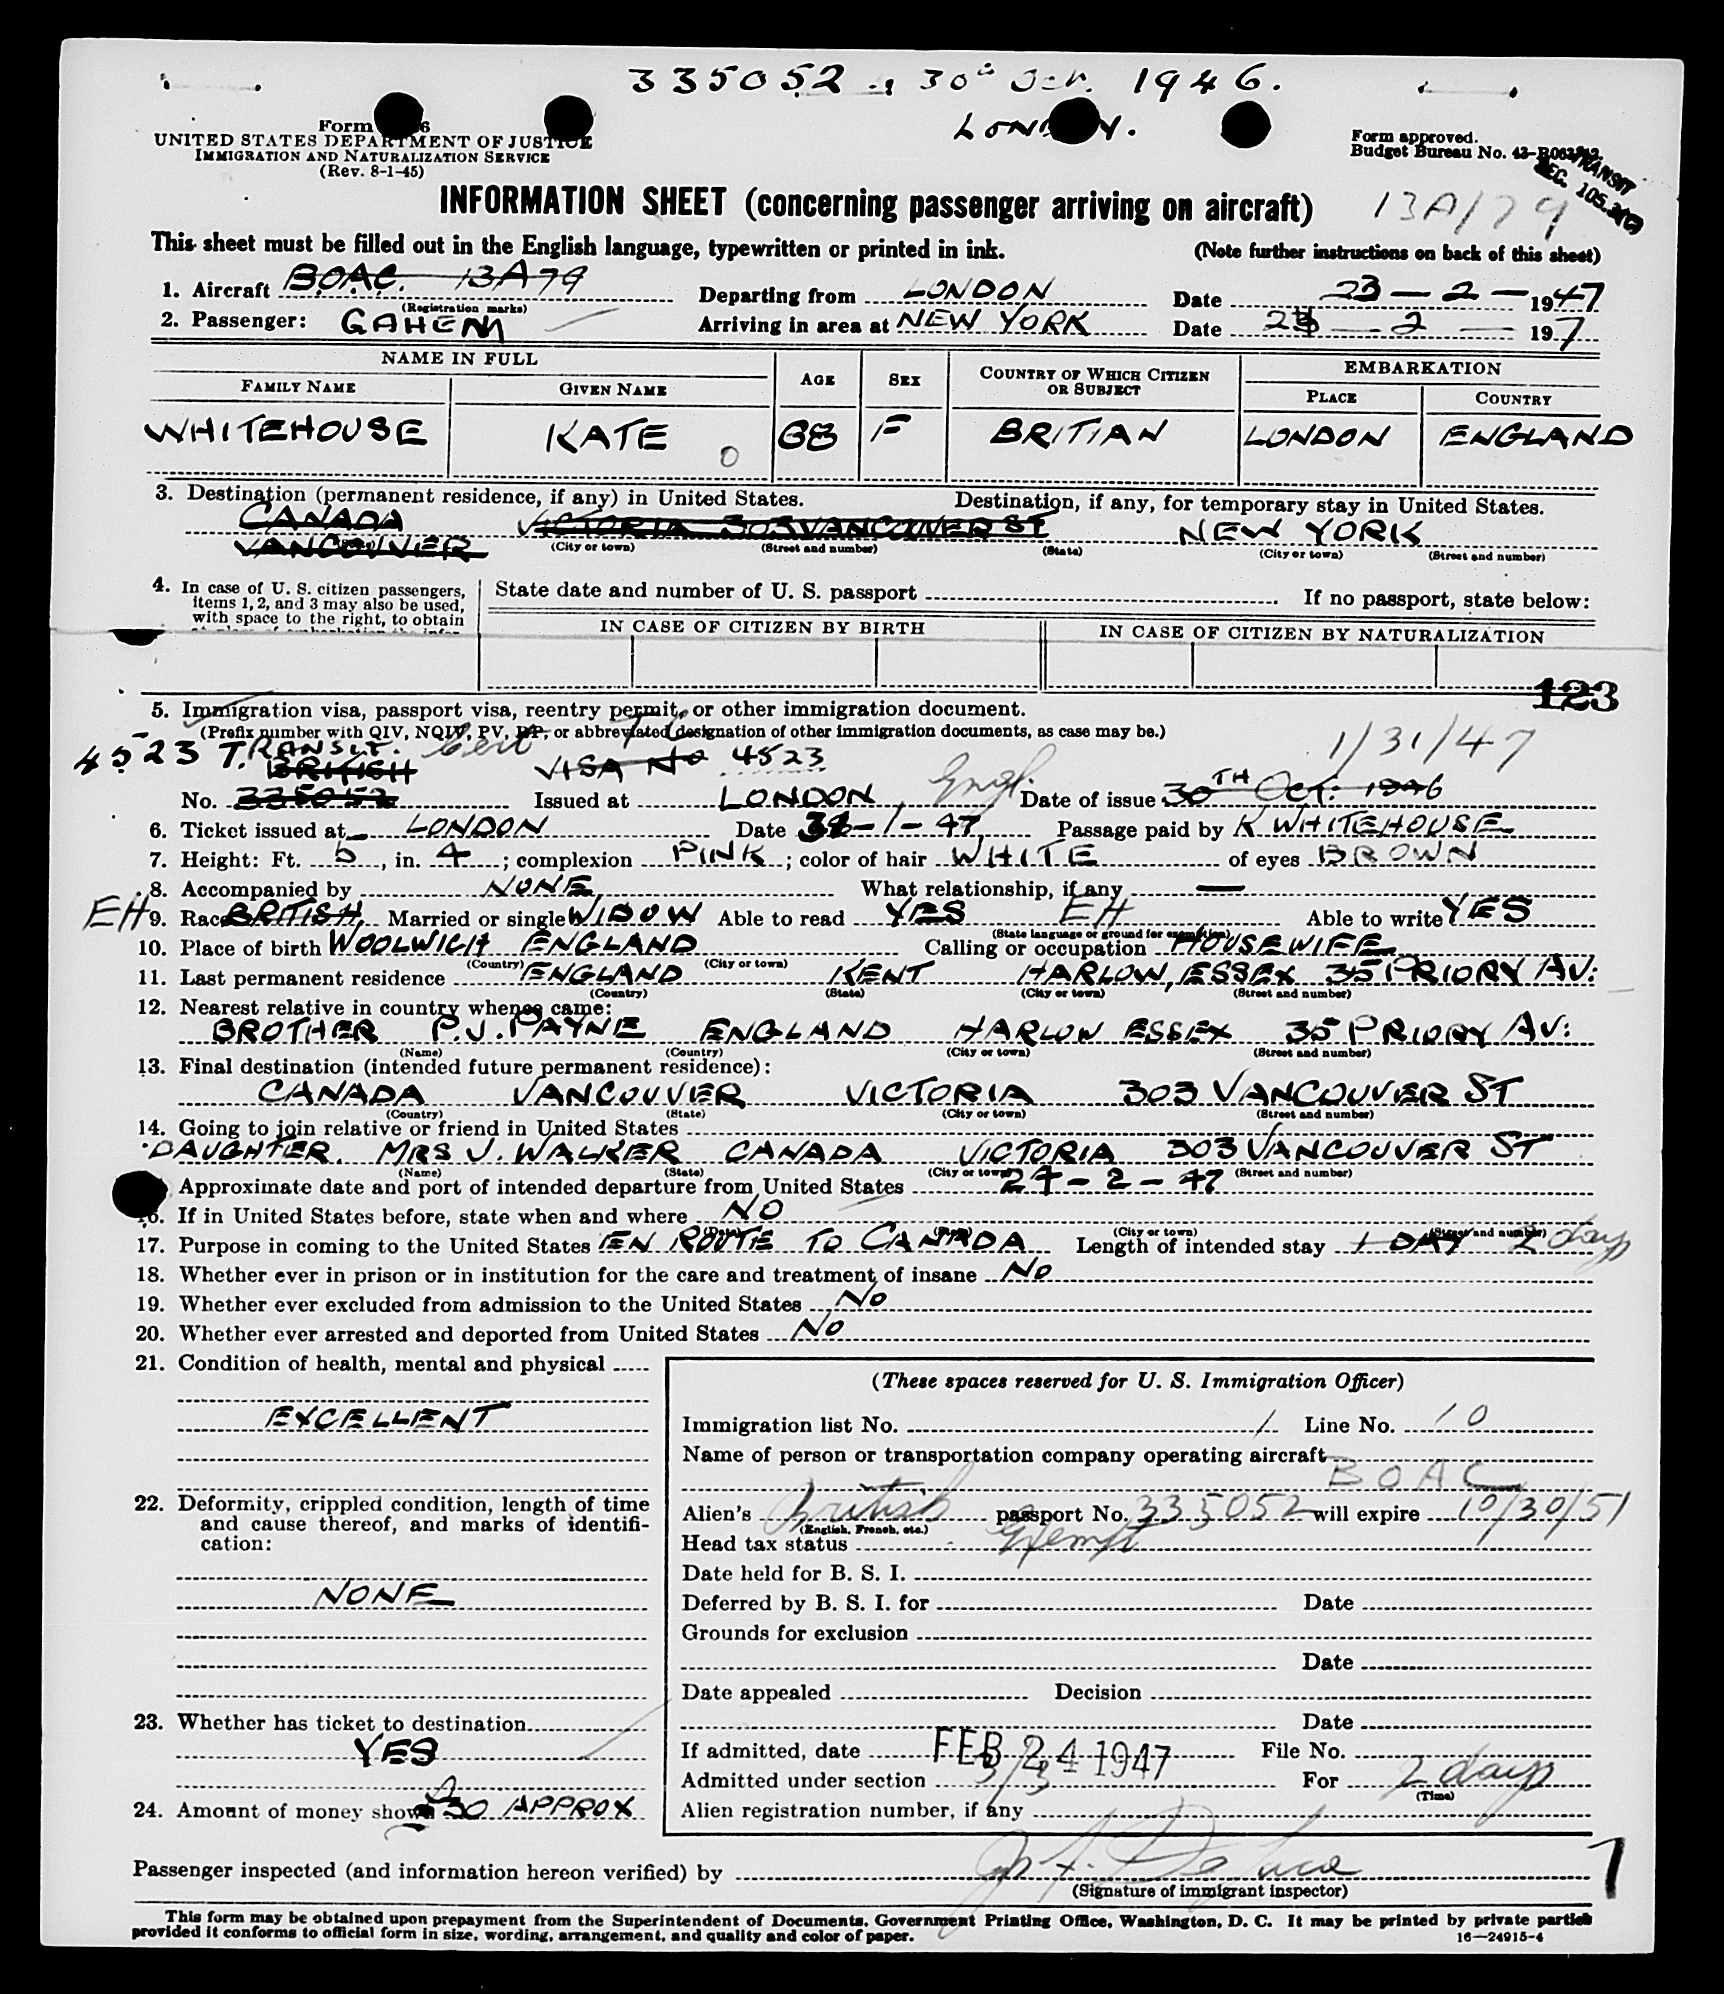 335052 30th Oct. 1946.
LONDON.
Form
UNITED STATES DEPARTMENT OF JUSTICE
IMMIGRATION AND NATURALIZATION SERVICE
(Rev. 8-1-45)
Form approved.
Budget Bureau No.
TRANSIT
SEC. 105.3(2)
INFORMATION SHEET (concerning passenger arriving on aircraft) 13A/79
This sheet must be filled out in the English language, typewritten or printed in ink. (Note further instructions on back of this sheet)
1. Aircraft B.O.A.C. 13A79 Departing from LONDON Date 23-2-1947
(Registration marks)
2. Passenger: GAHEM Arriving in area at NEW YORK Date 24-2-197
NAME IN FULL AGE SEX COUNTRY OF WHICH CITIZEN OR SUBJECT EMBARKATION
FAMILY NAME GIVEN NAME PLACE COUNTRY
WHITEHOUSE KATE 68 F BRITIAN LONDON ENGLAND
3. Destination (permanent residence, if any) in United States. Destination, if any, for temporary stay in United States.
CANADA VICTORIA 303 VANCOUVER ST NEW YORK
VANCOUVER (State) (City or town) (Street and number) (State) (City or town) (Street and number)
4. In case of U. S. citizen passengers, items 1, 2, and 3 may also be used, with space to the right, to obtain
State date and number of U. S. passport If no passport, state below:
IN CASE OF CITIZEN BY BIRTH IN CASE OF CITIZEN BY NATURALIZATION
123
5. Immigration visa, passport visa, reentry permit, or other immigration document.
(Prefix number with QIV, NQIV, PV, PP, or abbreviated designation of other immigration documents, as case may be.)
4523 TRANSIT. Cert 1/31/47
BRITISH VISA No 4523
No. 335052 Issued at LONDON, Engl. Date of issue 30TH OCT: 1946
6. Ticket issued at LONDON Date 31-1-47 Passage paid by K WHITEHOUSE
7. Height: Ft. 5, in. 4; complexion PINK; color of hair WHITE of eyes BROWN
8. Accompanied by NONE What relationship, if any —
EH 9. Race BRITISH Married or single WIDOW Able to read YES EH Able to write YES
(State language or ground for exemption)
10. Place of birth WOOLWICH ENGLAND Calling or occupation HOUSEWIFE
(Country) (City or town)
11. Last permanent residence ENGLAND KENT HARLOW, ESSEX 35 PRIORY AV:
(Country) (State) (City or town) (Street and number)
12. Nearest relative in country whence came:
BROTHER P.J. PAYNE ENGLAND HARLOW ESSEX 35 PRIORY AV:
(Name) (Country) (City or town) (Street and number)
13. Final destination (intended future permanent residence):
CANADA VANCOUVER VICTORIA 303 VANCOUVER ST
(Country) (State) (City or town) (Street and number)
14. Going to join relative or friend in United States
DAUGHTER. MRS J. WALKER CANADA VICTORIA 303 VANCOUVER ST
(Name) (State) (City or town) (Street and number)
Approximate date and port of intended departure from United States 24-2-47
16. If in United States before, state when and where NO
(Date) (State) (City or town) (Street and number)
17. Purpose in coming to the United States EN ROUTE TO CANADA Length of intended stay 1 DAY 2 days
18. Whether ever in prison or in institution for the care and treatment of insane NO
19. Whether ever excluded from admission to the United States NO
20. Whether ever arrested and deported from United States NO
21. Condition of health, mental and physical
EXCELLENT
22. Deformity, crippled condition, length of time
and cause thereof, and marks of identifi-
cation:
NONE
23. Whether has ticket to destination
YES
24. Amount of money shown 30 APPROX
(These spaces reserved for U. S. Immigration Officer)
Immigration list No. 1 Line No. 10
Name of person or transportation company operating aircraft
BOAC
Alien's British passport No. 335052 will expire 10/30/51
(English, French, etc.)
Head tax status Exempt
Date held for B. S. I.
Deferred by B. S. I. for Date
Grounds for exclusion
Date
Date appealed Decision
Date
If admitted, date FEB 24 1947 File No.
Admitted under section 3/3 For 2 days
(Time)
Alien registration number, if any
Passenger inspected (and information hereon verified) by
(Signature of immigrant inspector)
This form may be obtained upon prepayment from the Superintendent of Documents, Government Printing Office, Washington, D. C. It may be printed by private parties
provided it conforms to official form in size, wording, arrangement, and quality and color of paper.
16—24915-4